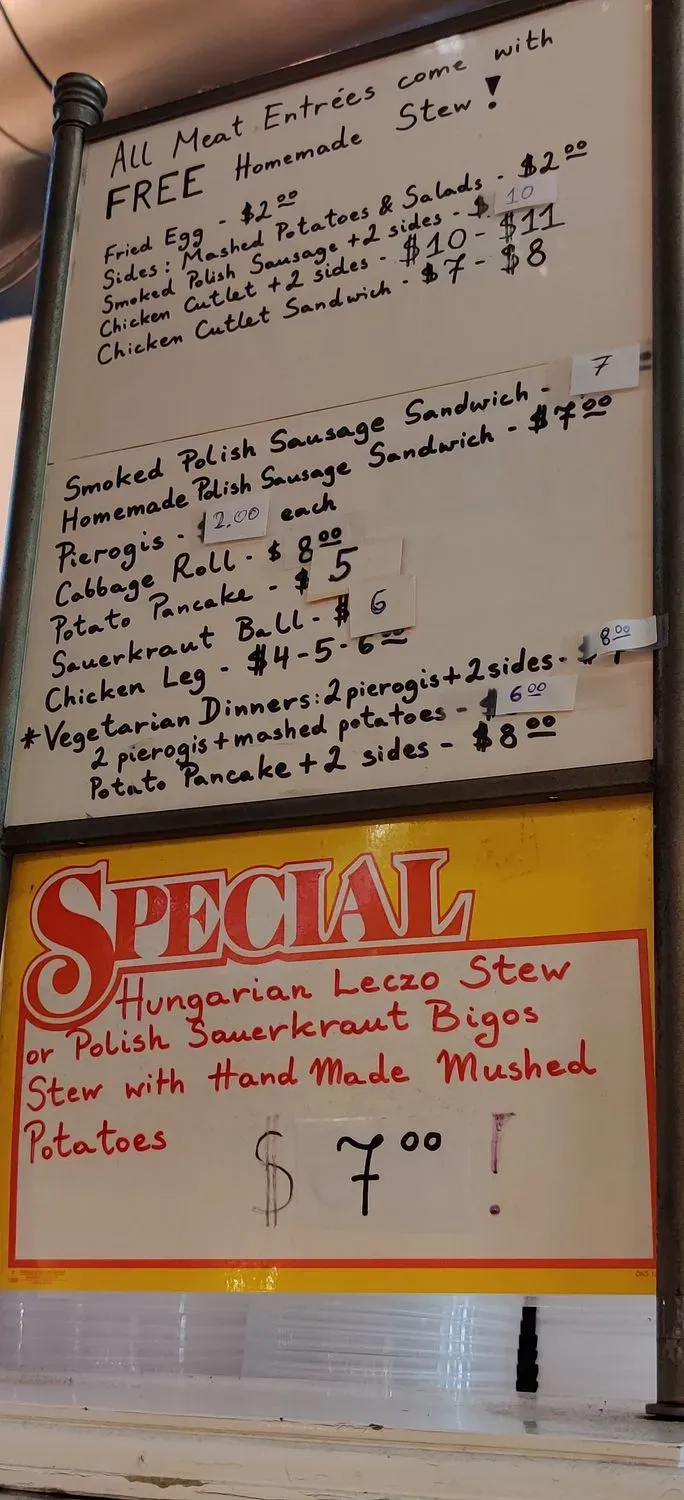 All Meat Entrées come with
FREE Homemade Stew!
Fried Egg - $2.00
Sides: Mashed Potatoes & Salads - $2.00
Smoked Polish Sausage + 2 sides - $ 10
Chicken Cutlet + 2 sides - $10 - $11
Chicken Cutlet Sandwich - $7 - $8
Smoked Polish Sausage Sandwich - 7
Homemade Polish Sausage Sandwich - $7.00
Pierogis - $2.00 each
Cabbage Roll - $ 8.00
Potato Pancake - $ 5
Sauerkraut Ball - $ 6
Chicken Leg - $4-5-6.00
*Vegetarian Dinners: 2 pierogis + 2 sides - $ 8.00
2 pierogis + mashed potatoes - $ 6.00
Potato Pancake + 2 sides - $8.00
SPECIAL
Hungarian Leczo Stew
or Polish Sauerkraut Bigos
Stew with Hand Made Mushed
Potatoes $ 7.00 !